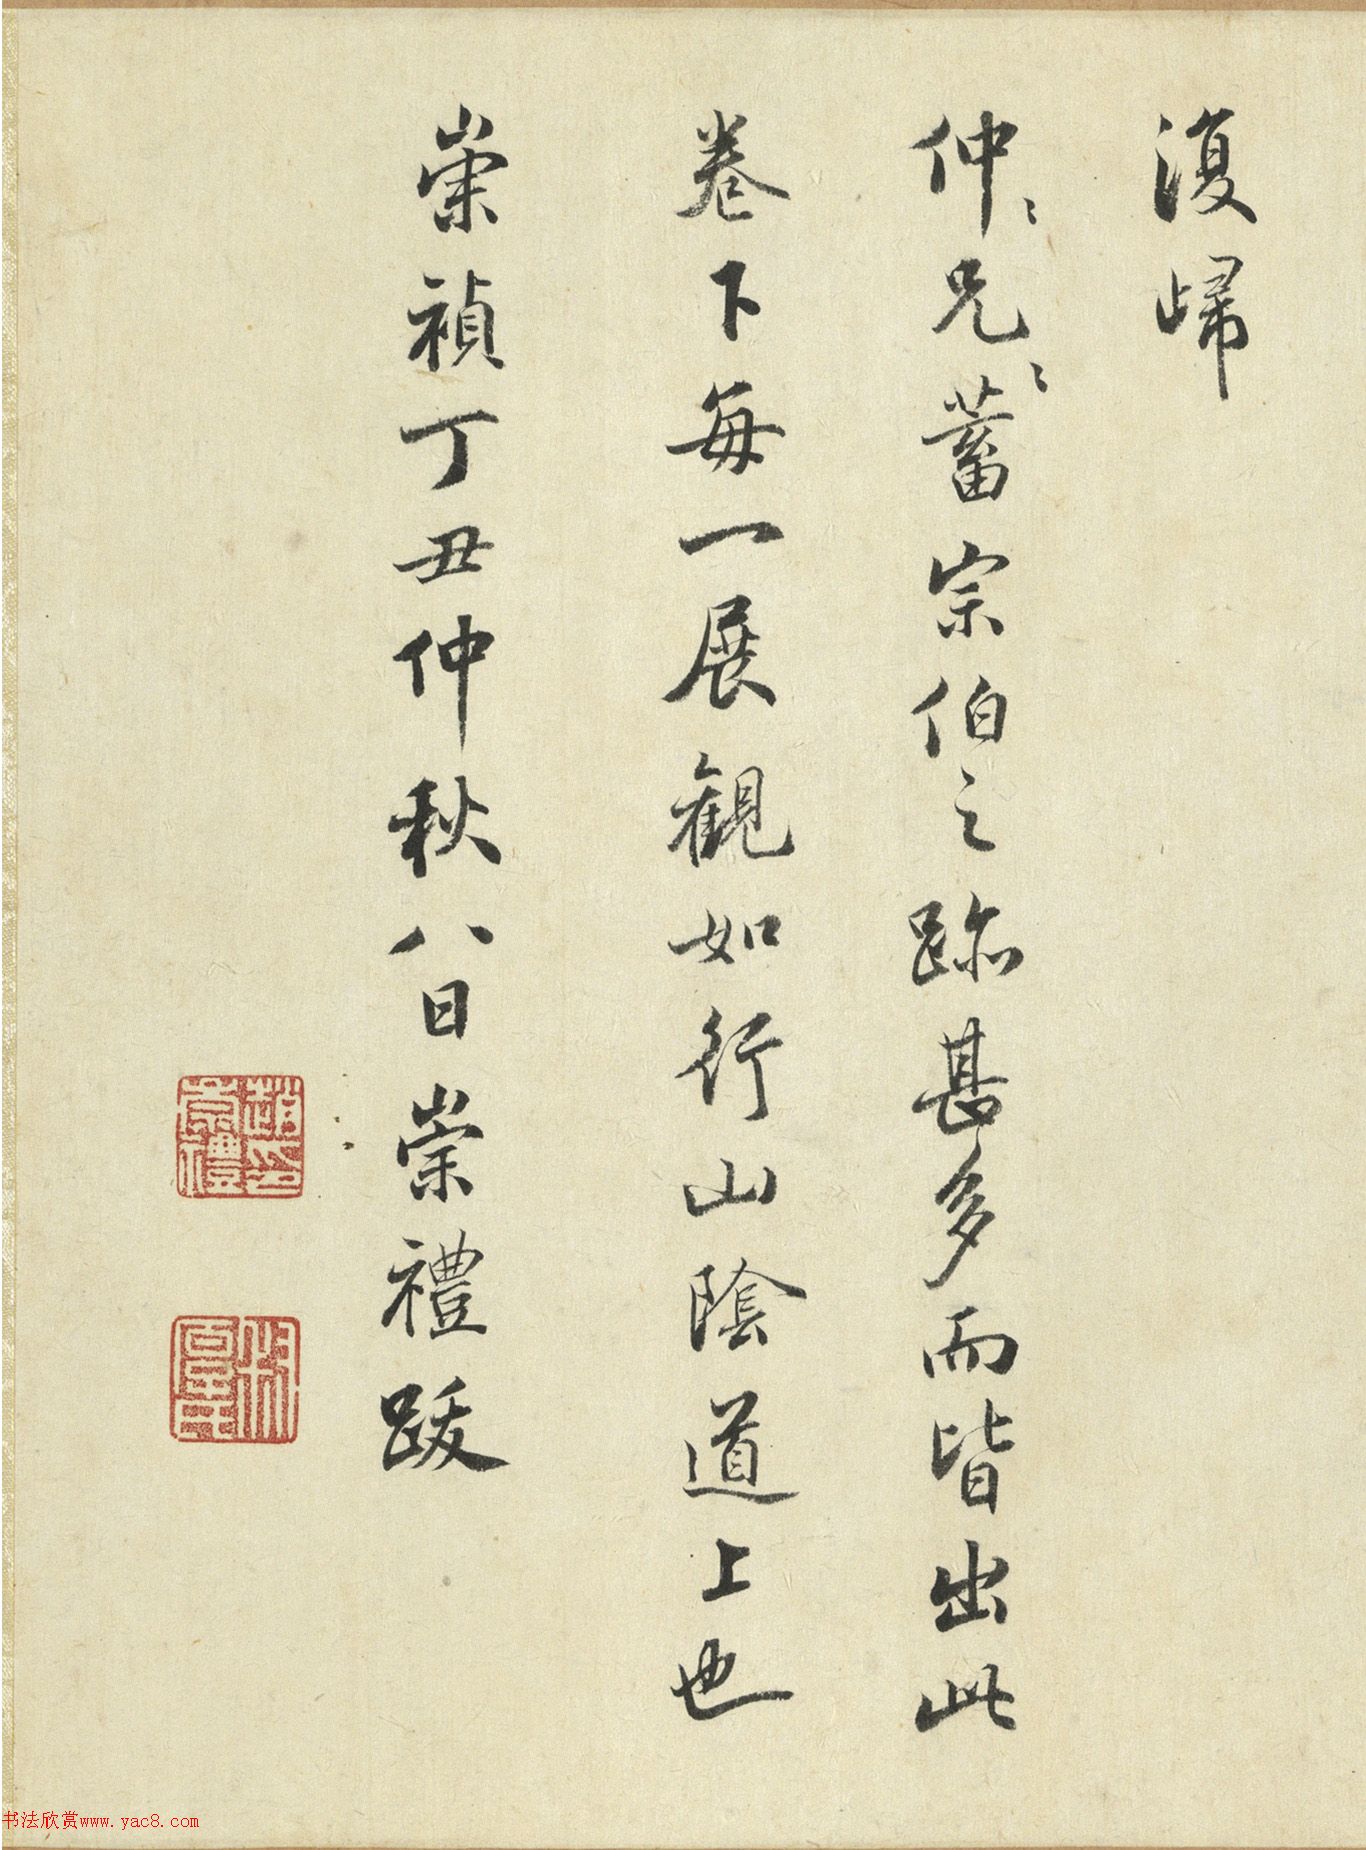 復歸
仲〻兄〻蓄宗伯之跡甚多而皆出此
卷下每一展觀如行山陰道上也
崇禎丁丑仲秋八日崇禮跋
趙崇禮印
书法欣赏www.yac8.com